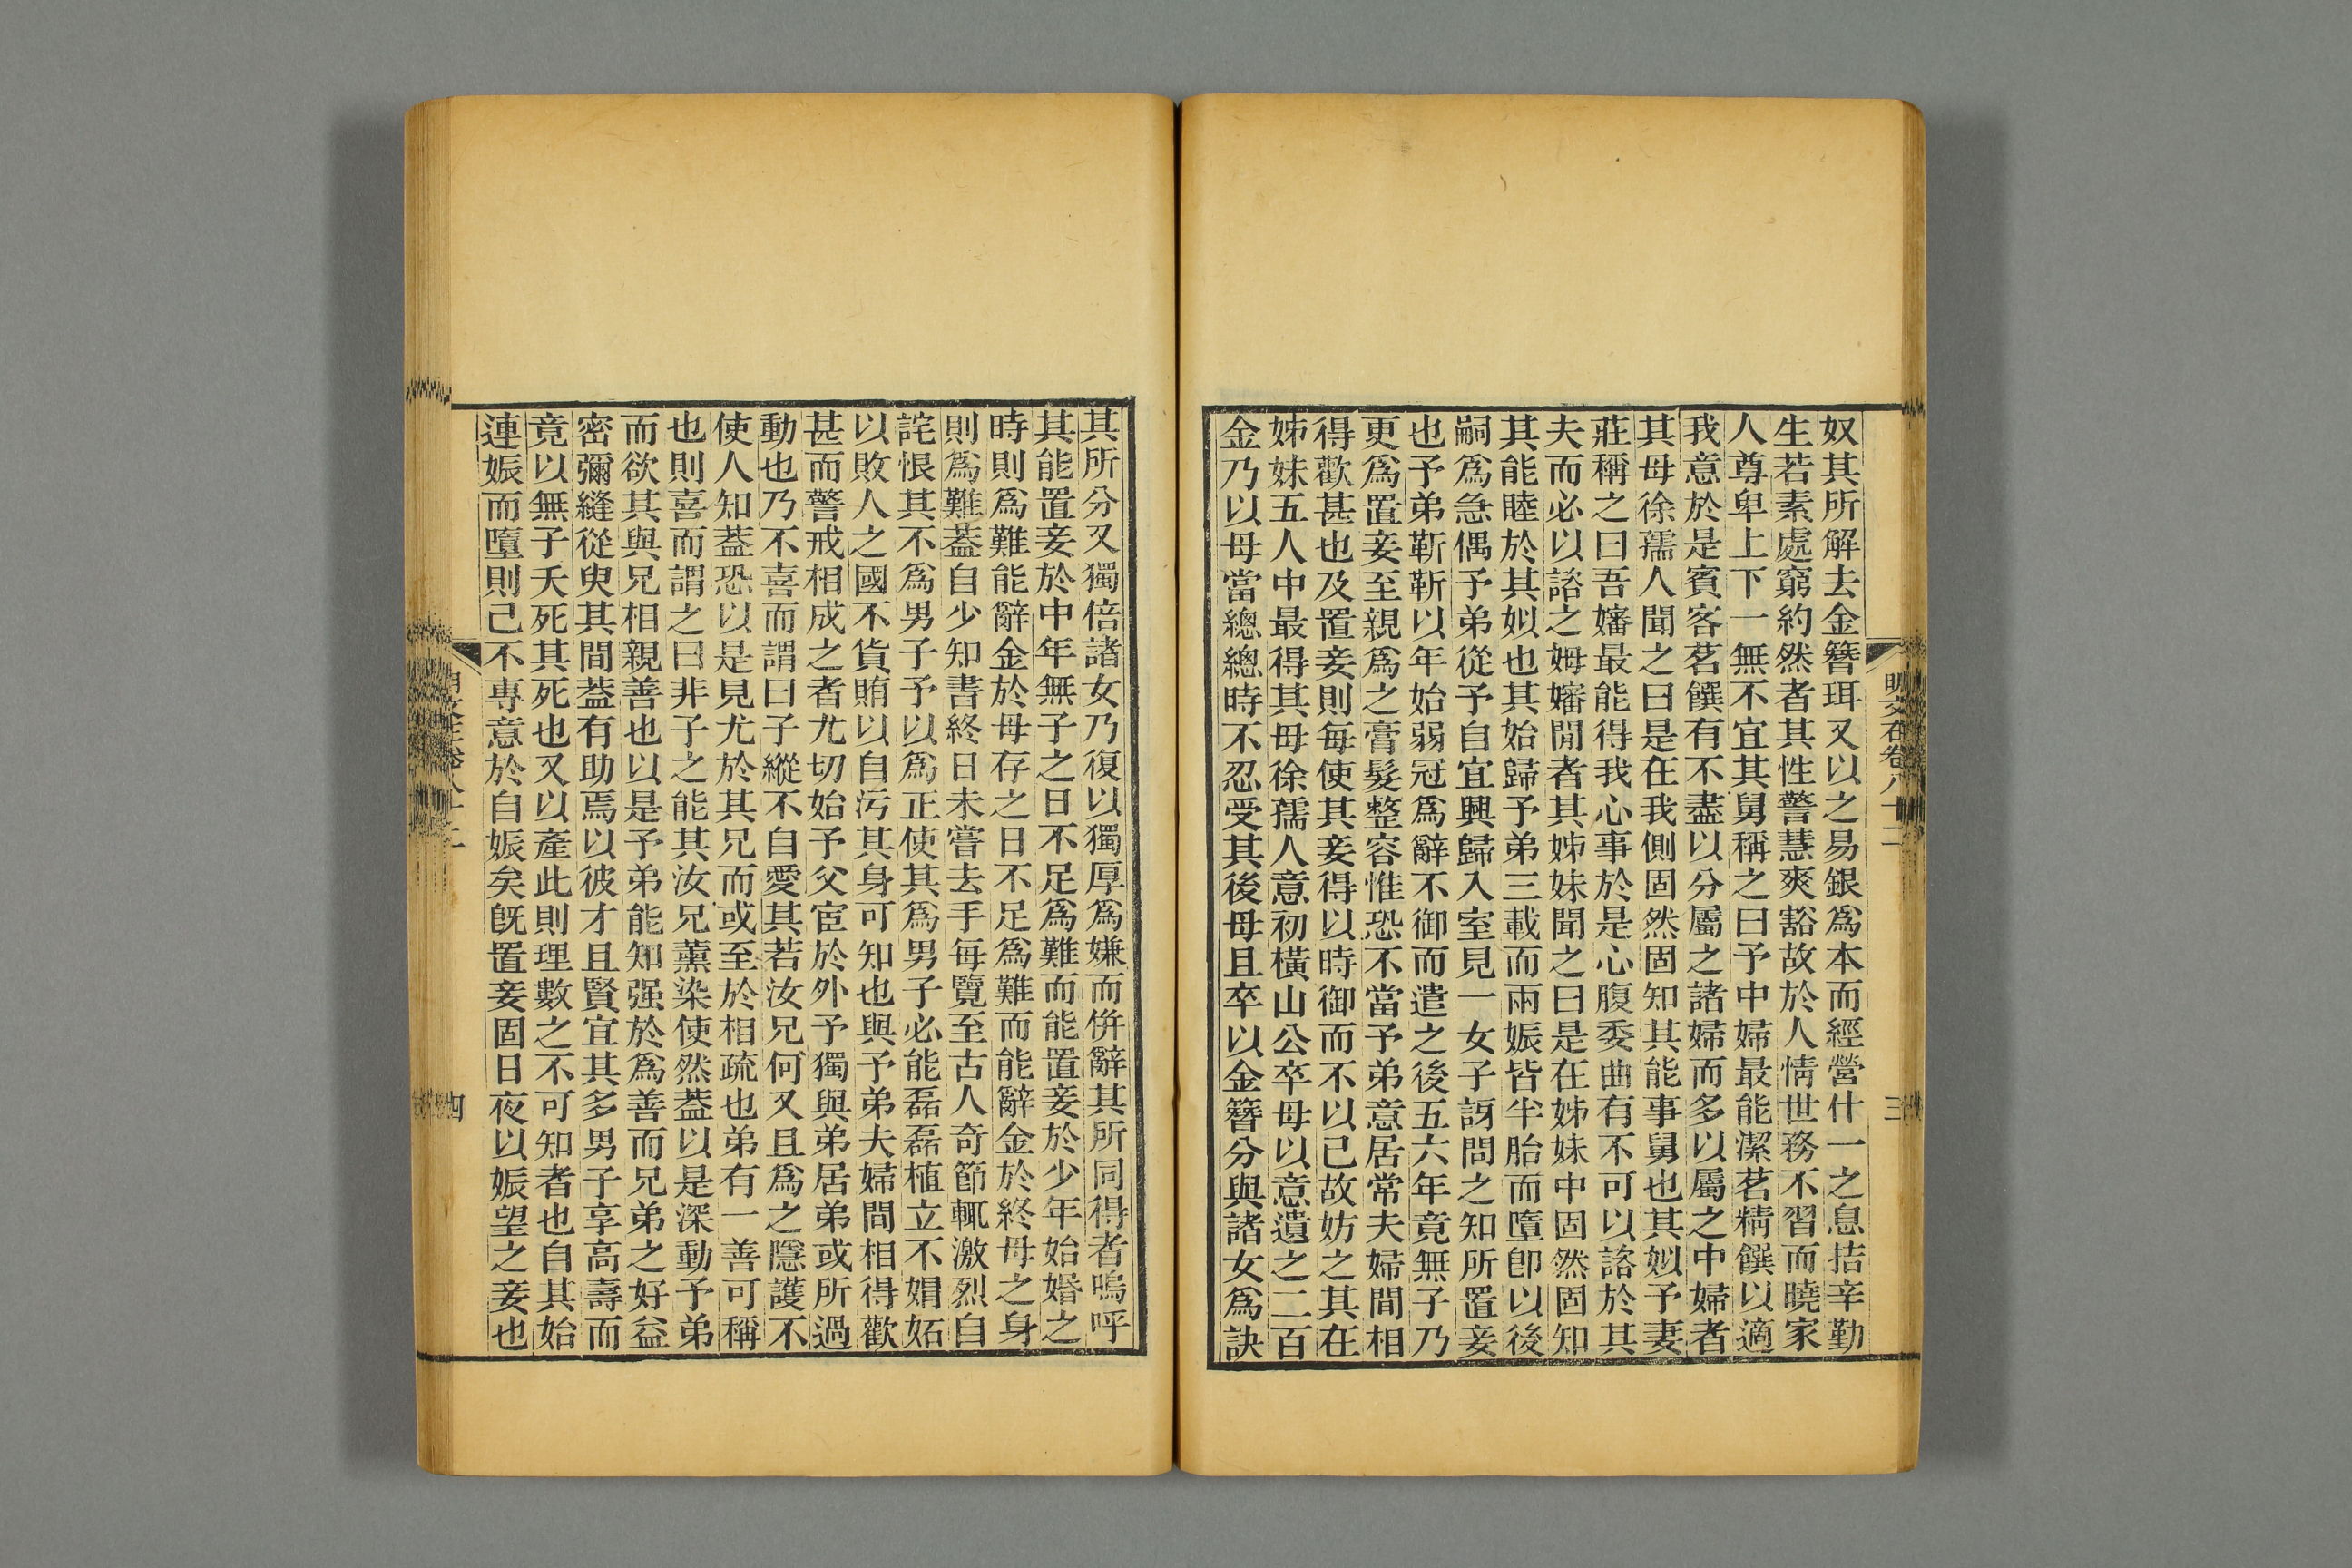 奴其所解去金簪珥又以之易銀爲本而經營什一之息拮辛勤
生若素處窮約然者其性警慧爽豁故於人情世務不習而曉家
人尊卑上下一無不宜其舅稱之曰予中婦最能潔茗精饌以適
我意於是賓客茗饌有不盡以分屬之諸婦而多以屬之中婦者
其母徐孺人聞之曰是在我側固然固知其能事舅也其姒予妻
莊稱之曰吾嬸最能得我心事於是心腹委曲有不可以諮於其
夫而必以諮之姆嬸閒者其姊妹聞之曰是在姊妹中固然固知
其能睦於其姒也其始歸予弟三載而兩娠皆半胎而墮卽以後
嗣爲急偶予弟從予自宜興歸入室見一女子訝問之知所置妾
也予弟靳靳以年始弱冠爲辭不御而遣之後五六年竟無子乃
更爲置妾至親爲之膏髮整容惟恐不當予弟意居常夫婦間相
得歡甚也及置妾則每使其妾得以時御而不以己故妨之其在
姊妹五人中最得其母徐孺人意初橫山公卒母以意遺之二百
金乃以母當總總時不忍受其後母且卒以金簪分與諸女爲訣
明文在卷八十二
三
其所分又獨倍諸女乃復以獨厚爲嫌而倂辭其所同得者嗚呼
其能置妾於中年無子之日不足爲難而能置妾於少年始婚之
時則爲難能辭金於母存之日不足爲難而能辭金於終母之身
則爲難葢自少知書終日未嘗去手每覽至古人奇節輒激烈自
詫恨其不爲男子予以爲正使其爲男子必能磊磊植立不媢妬
以敗人之國不貨賄以自污其身可知也與予弟夫婦間相得歡
甚而警戒相成之者尤切始予父宦於外予獨與弟居弟或所過
動也乃不喜而謂曰子縱不自愛其若汝兄何又且爲之隱護不
使人知葢恐以是見尤於其兄而或至於相疏也弟有一善可稱
也則喜而謂之曰非子之能其汝兄薰染使然葢以是深動予弟
而欲其與兄相親善也以是予弟能知强於爲善而兄弟之好益
密彌縫從臾其間葢有助焉以彼才且賢宜其多男子享高壽而
竟以無子夭死其死也又以產此則理數之不可知者也自其始
連娠而墮則己不專意於自娠矣旣置妾固日夜以娠望之妾也
四